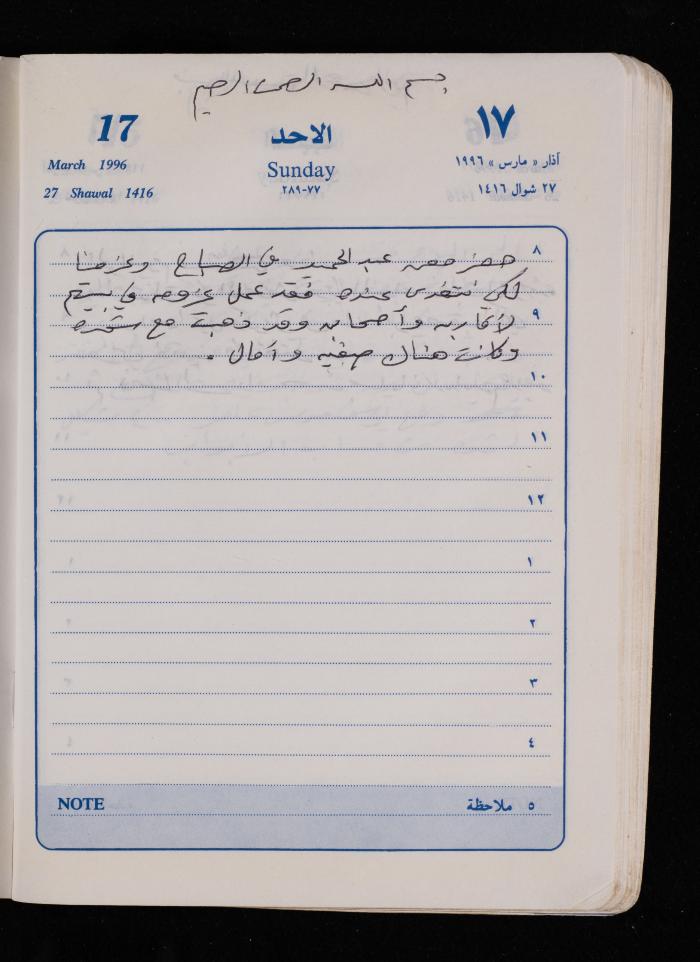 بسم الله الرحمن الرحيم
17
١٧
الاحد
March 1996
Sunday
آذار « مارس » ١٩٩٦
27 Shawal 1416
٧٧-٢٨٩
٢٧ شوال ١٤١٦
٨
حضر معن عبد الحميد في الصباح وعزمنا
لكي نتغدى عنده فقد عمل عزومه في بيتهم
٩
لأقاربه وأصحابه وقد ذهبت مع
وكانت هناك صفيه وآمال .
١٠
١١
١٢
١
٢
٣
٤
NOTE
٥ ملاحظة